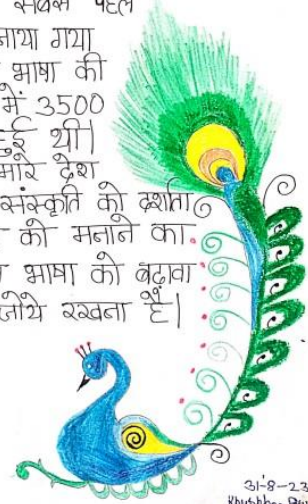 सबसे पहले
नाया गया
भाषा की
में 3500
हुई थी।
मारे देश
संस्कृति को दर्शाता
को मनाने का
भाषा को बढ़ावा
जोये रखना हैं|
31-8-23